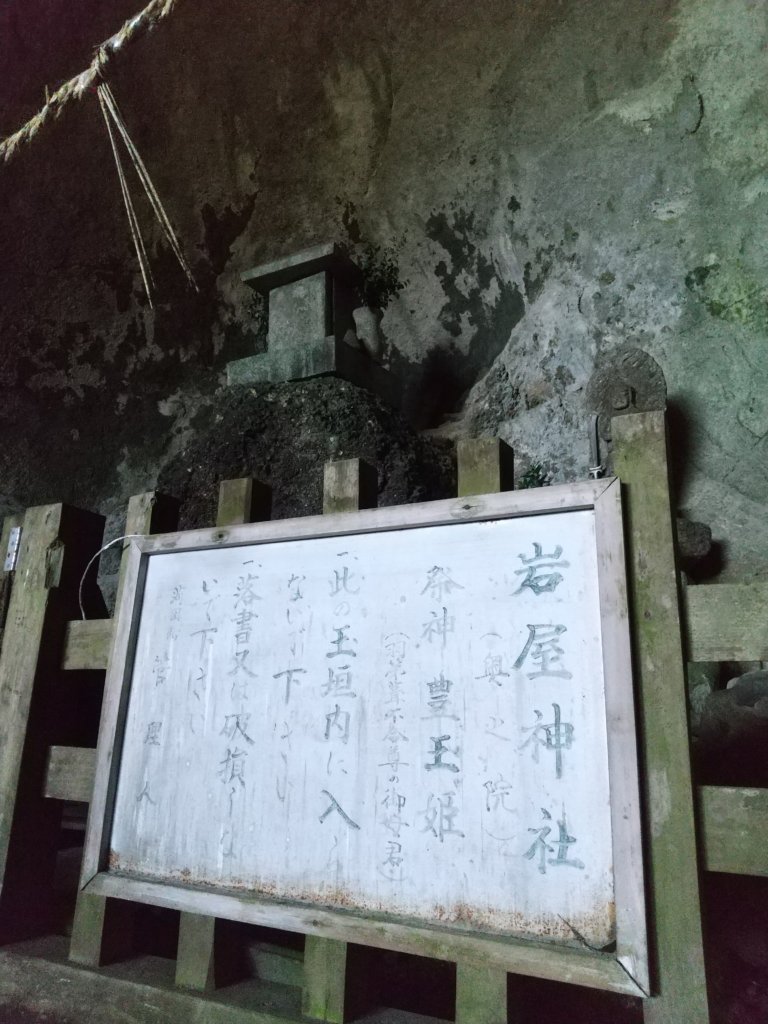 岩屋神社
（奥之院）
祭神 豊玉姫
（羽茸草不合尊の御母君）
一、此の玉垣内に入ら
ないで下さい
一、落書又は破損しな
いで下さい
管理人